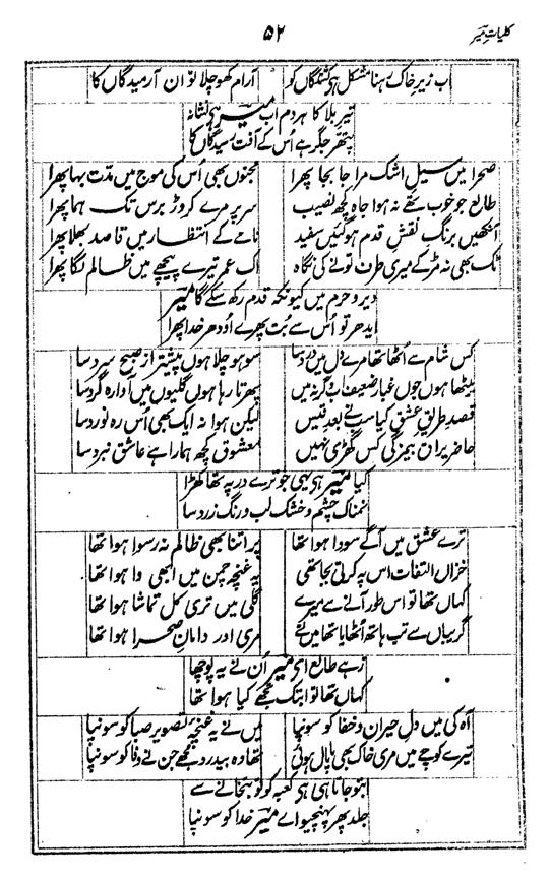 کلیاتِ میرؔ
۵۲
اب زیرِ خاک رہنا مشکل ہی کشتگاں کو آرام کھو چلا تو ان آرمیدگاں کا
تیرِ بلا کا ہر دم اب میرؔ ہی نشانہ
پتھر جگر ہے اُس کے آفت رسیدگاں کا
صحرا میں سیلِ اشک مرا جا بجا پھرا مجنوں بھی اُس کی موج میں مدت بہا پھرا
طالع جو خوب تھے نہ ہوا جاہ کچھ نصیب سر پر مرے کروڑ برس تک ہما پھرا
آنکھیں برنگِ نقشِ قدم ہوگئیں سفید نامے کے انتظار میں قاصد بھلا پھرا
ٹک بھی نہ مڑ کے میری طرف تو نے کی نگاہ اک عمر تیرے پیچھے میں ظالم لگا پھرا
دیر و حرم میں کیونکہ قدم رکھ سکے گا میرؔ
ایدھر تو اُس سے بُت پھرے اودھر خدا پھرا
کس شام سے اُٹھا تھا مرے دل میں درد سا سو ہو چلا ہوں پیشتر از صبح سرد سا
بیٹھا ہوں جوں غبارِ ضعیف اب وگرنہ میں پھرتا رہا ہوں گلیوں میں آوارہ گرد سا
قصدِ طریقِ عشق کیا سب نے بعدِ قیس لیکن ہوا نہ ایک بھی اُس رہ نورد سا
حاضر یراقِ بیمزگی کس گھڑی نہیں معشوق کچھ ہمارا ہے عاشق نبرد سا
کیا میرؔ ہی یہی جو ترے در پہ تھا کھڑا
نمناک چشم و خشک لب و رنگ زرد سا
ترے عشق میں آگے سودا ہوا تھا پر اتنا بھی ظالم نہ رسوا ہوا تھا
خزاں التفات اس پہ کرتی بجا تھی یہ غنچہ چمن میں ابھی وا ہوا تھا
کہاں تھا تو اس طور آنے سے میرے گلی میں تری کل تماشا ہوا تھا
گریباں سے تب ہاتھ اُٹھایا تھا میں نے مری اور دامانِ صحرا ہوا تھا
زہے طالع اے میرؔ اُن نے یہ پوچھا
کہاں تھا تو ابتک تجھے کیا ہوا تھا
آہ کی میں دلِ حیران و خفا کو سونپا میں نے یہ غنچۂ تصویر صبا کو سونپا
تیرے کوچے میں مری خاک بھی پامال ہوئی تھا وہ بیدرد مجھے جن نے وفا کو سونپا
اب تو جاتا ہی ہی کعبہ کو تو بتخانے سے
جلد پھر پہنچیو اے میرؔ خدا کو سونپا